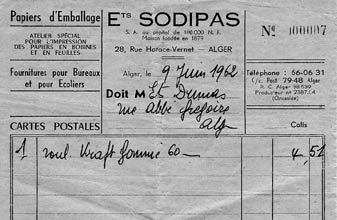 Papiers d'Emballage
ATELIER SPÉCIAL
POUR L'IMPRESSION
DES PAPIERS EN BOBINES
ET EN FEUILLES
Fournitures pour Bureaux
et pour Écoliers
CARTES POSTALES
Ets SODIPAS
S. A. au capital de 100.000 N. F.
Maison fondée en 1879
28, Rue Horace-Vernet — ALGER
Alger, le 9 Juin 1962
Doit M Ets Dumas
rue Abbé Grégoire
Alger
№ 000007
Téléphone : 66-06-31
C/c. Post. 79-48 Alger
R. C. Alger
Producteur
Colis
1 roul. Kraft gommé 60 — 4,51